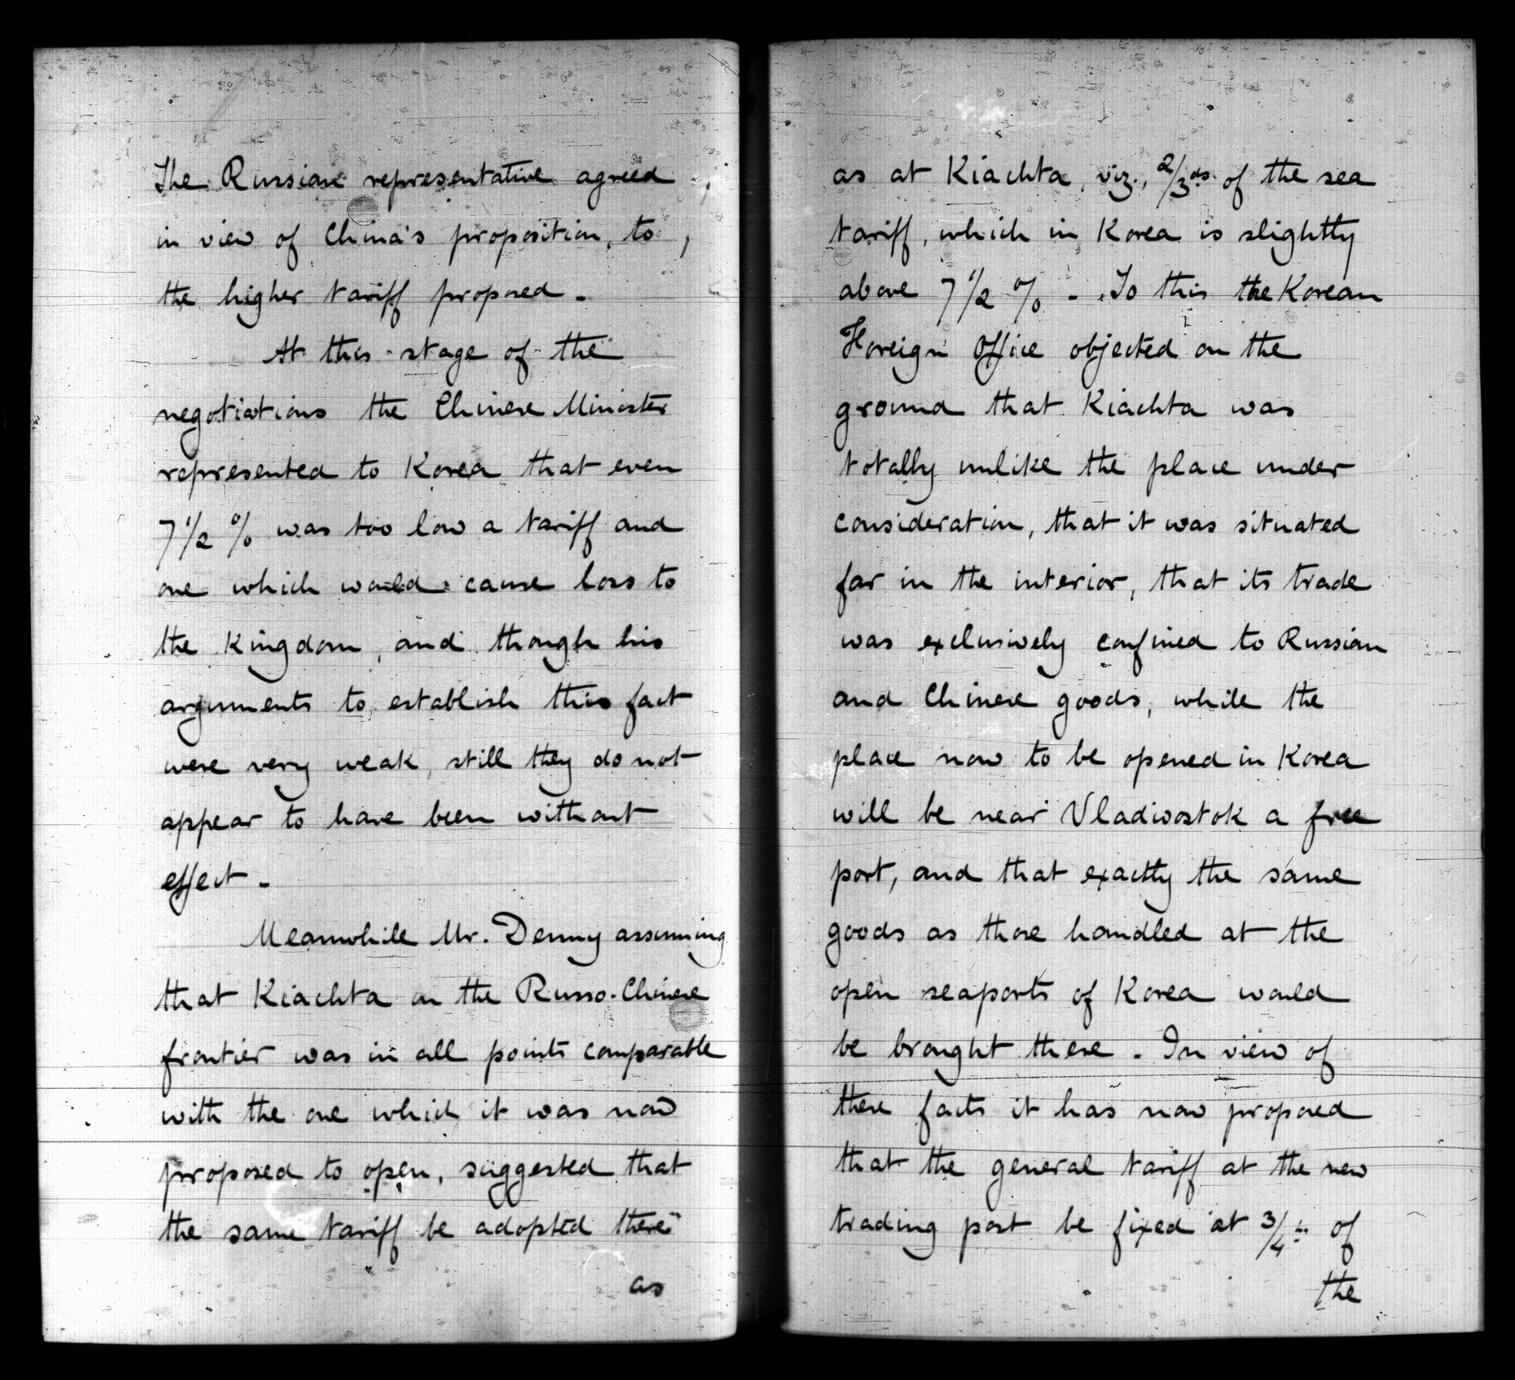 The Russian representative agreed
in view of China's proposition, to
the higher tariff proposed.
At this stage of the
negotiations the Chinese Minister
represented to Korea that even
7 1/2 % was too low a tariff and
one which would cause loss to
the Kingdom, and though his
arguments to establish this fact
were very weak, still they do not
appear to have been without
effect.
Meanwhile Mr. Denny assuming
that Kiachta on the Russo-Chinese
frontier was in all points comparable
with the one which it was now
proposed to open, suggested that
the same tariff be adopted there
as
as at Kiachta, viz., 2/3ds of the sea
tariff, which in Korea is slightly
above 7 1/2 % - To this the Korean
Foreign Office objected on the
ground that Kiachta was
totally unlike the place under
consideration, that it was situated
far in the interior, that its trade
was exclusively confined to Russian
and Chinese goods, while the
place now to be opened in Korea
will be near Vladivostok a free
port, and that exactly the same
goods as those handled at the
open seaports of Korea would
be brought there. In view of
these facts it has now proposed
that the general tariff at the new
trading post be fixed at 3/4 of
the